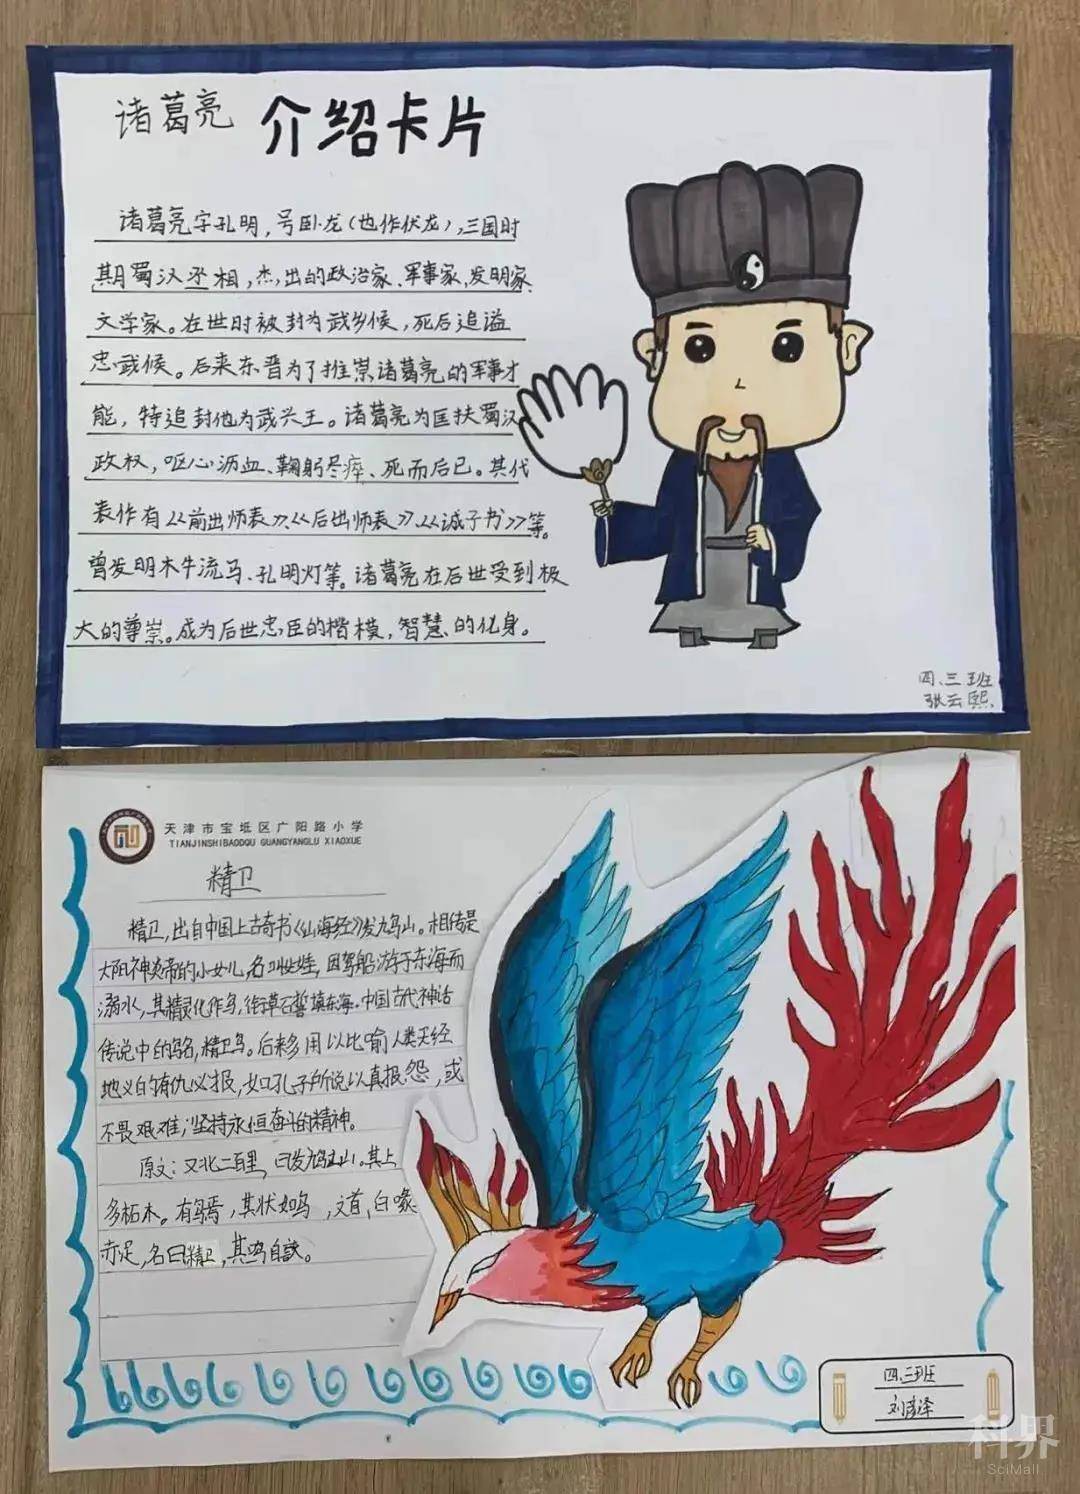 诸葛亮 介绍卡片
诸葛亮字孔明，号卧龙（也作伏龙），三国时
期蜀汉丞相，杰出的政治家、军事家，发明家、
文学家。在世时被封为武乡候，死后追谥
忠武候。后来东晋为了推崇诸葛亮的军事才
能，特追封他为武兴王。诸葛亮为匡扶蜀汉
政权，呕心沥血、鞠躬尽瘁、死而后已。其代
表作有《前出师表》、《后出师表》、《诫子书》等。
曾发明木牛流马、孔明灯等。诸葛亮在后世受到极
大的尊崇。成为后世忠臣的楷模，智慧的化身。
四、三班
张云熙
天津市宝坻区广阳路小学
TIANJINSHIBAODIQU GUANGYANGLU XIAOXUE
精卫
精卫，出自中国上古奇书《山海经》发鸠山。相传是
太阳神炎帝的小女儿，名叫女娃，因驾船游于东海而
溺水，其精灵化作鸟，衔草石誓填东海。中国古代神话
传说中的鸟名，精卫鸟。后来多用以比喻人类天经
地义的有仇必报，如孔子所说以真报怨，或
不畏艰难；坚持永恒奋斗的精神。
原文：又北二百里，曰发鸠之山。其上
多柘木。有鸟焉，其状如乌，文首，白喙
赤足，名曰精卫，其鸣自詨。
四、三班
刘彦泽
科界
SciMall